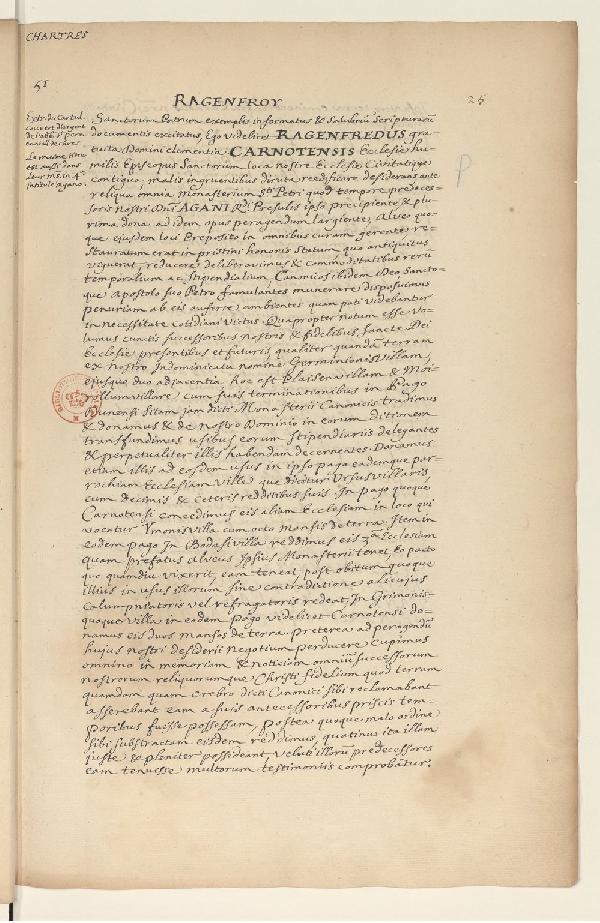 CHARTRES
51
RAGENFROY
25
Extr. du Cartul.
couvert d'argent
de l'abb. St. Pere
en val. de chres.
Le mesme titre
est aussi dans
intitulé agano.
P
Sanctorum Patrum exemplis informatus & Salubriū Scripturarū
documentis excitatus, Ego videlicet RAGENFREDUS gra-
tuita Domini clementia CARNOTENSIS Ecclesię hu-
milis Episcopus Sanctorum loca nostrę Ecclesię Civitatique
contigua, malis ingruentibus diruta reedificare desiderans ante
reliqua omnia Monasterium Sti Petri quod tempore predeces-
soris nostri Dni AGANI Presulis ipso precipiente & plu-
rima dona ad idem opus peragendum largiente, Alveo quo-
que ejusdem loci Preposito in omnibus curam gerente, re-
stauratum erat in pristini honoris statum quo antiquitus
viguerat, reducere deliberavimus & commoditatibus rerū
temporalium ac stipendialium, Canonicos ibidem Deo Sancto-
que Apostolo suo Petro famulantes munerare disposuimus
penuriam ab eis auferre ambientes quam pati videbantur
in necessitate cotidiani victus. Quapropter notum esse vo-
lumus cunctis successoribus nostris & fidelibus, sanctę Dei
Ecclesię presentibus et futuris, qualiter quandā terram
ex nostro Indominicatu nomine Germinionis Villam,
ejusque duo adjacentia hoc est Blassenvillam & Mo-
rollum villare cum suis terminationibus in Pago
Dunensi sitam jam dicti Monasterii Canonicis tradimus
& donamus & de nostro Dominio in eorum ditionem
transfundimus usibus eorum stipendiariis delegantes
& perpetualiter illis habendam decernentes. Donamus
etiam illis ad eosdem usus in ipso pago eademque par-
rochiam Ecclesiam villa que dicitur Ursus villaris
cum decimis & ceteris redditibus suis. In pago quoque
Carnotensi concedimus eis aliam Ecclesiam in loco qui
vocatur Imonis villa cum octo Mansis de terra. Item in
eodem pago In Bodasi villa reddimus eis 3am Ecclesiam
quam prefatus Alveus Ipsius Monasterii tenet, Eo pacto
quo quamdiu vixerit, eam teneat, post obitum quoque
illius in usus illorum sine contradictione alicujus
calumpniatoris vel refragatoris redeat. In Grimonis-
quoque villa in eodem pago videlicet Carnotensi do-
namus eis duos Mansos de terra. Preterea ad peragendū
hujus nostri desiderii negotium perducere cupimus
omnino in memoriam & notitiam omniū successorum
nostrorum reliquorumque Christi fidelium quod terram
quamdam quam crebro dicti Canonici sibi reclamabant
asserebant eam a suis antecessoribus priscis tem-
poribus fuisse possessam, postea quoque malo ordine
sibi substractam eisdem reddimus, quatinus ita illam
juste & pleniter possideant, velut illorū predecessores
eam tenuisse multorum testimoniis comprobātur.